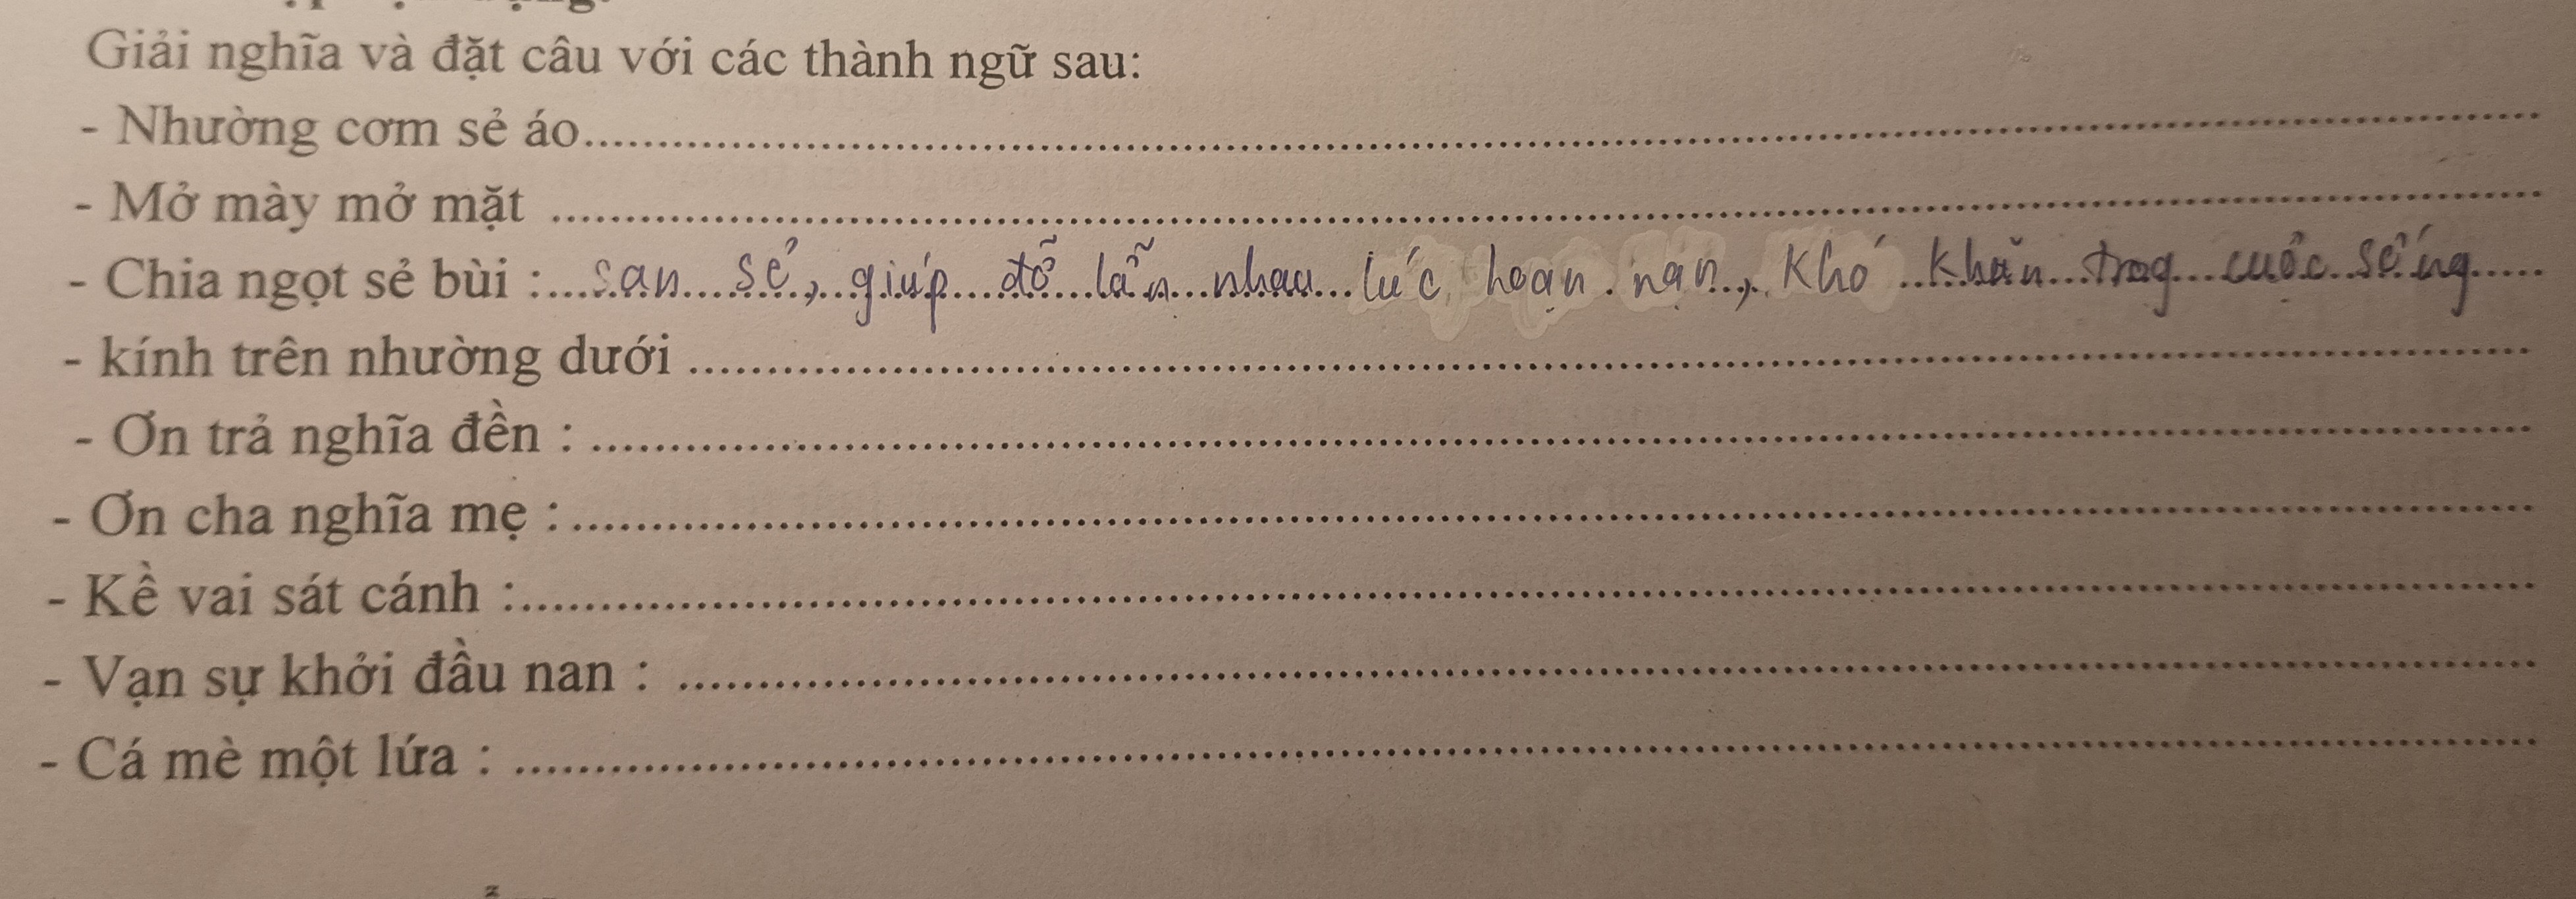 Giải nghĩa và đặt câu với các thành ngữ sau:
- Nhường cơm sẻ áo..........
- Mở mày mở mặt ..........
- Chia ngọt sẻ bùi :...san sẻ, giúp đỡ lẫn nhau lúc hoạn nạn, khó khăn trog cuộc sống...
- kính trên nhường dưới ..........
- Ơn trả nghĩa đền : ..........
- Ơn cha nghĩa mẹ : ..........
- Kề vai sát cánh :..........
- Vạn sự khởi đầu nan : ..........
- Cá mè một lứa : ..........